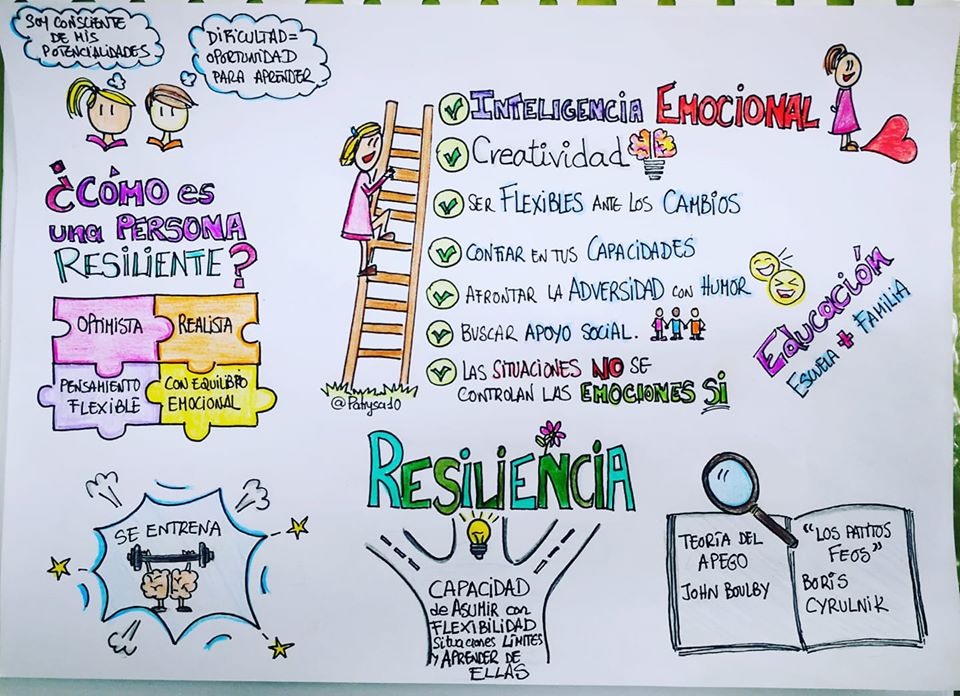 SOY CONSCIENTE
DE MIS
POTENCIALIDADES
DIFICULTAD=
OPORTUNIDAD
PARA APRENDER
¿CÓMO es
una PERSONA
RESILIENTE?
OPTIMISTA
REALISTA
PENSAMIENTO
FLEXIBLE
CON EQUILIBRIO
EMOCIONAL
INTELIGENCIA EMOCIONAL
Creatividad
SER FLEXIBLES ANTE LOS CAMBIOS
CONFIAR EN TUS CAPACIDADES
AFRONTAR LA ADVERSIDAD CON HUMOR
BUSCAR APOYO SOCIAL.
LAS SITUACIONES NO SE
CONTROLAN LAS EMOCIONES SI
@Patrysa10
Educación
ESCUELA + FAMILIA
RESILIENCIA
CAPACIDAD
de ASUMIR con
FLEXIBILIDAD
Situaciones LÍMITES
y APRENDER DE
ELLAS
SE ENTRENA
TEORÍA DEL
APEGO
JOHN BOULBY
"LOS PATITOS
FEOS"
BORIS
CYRULNIK